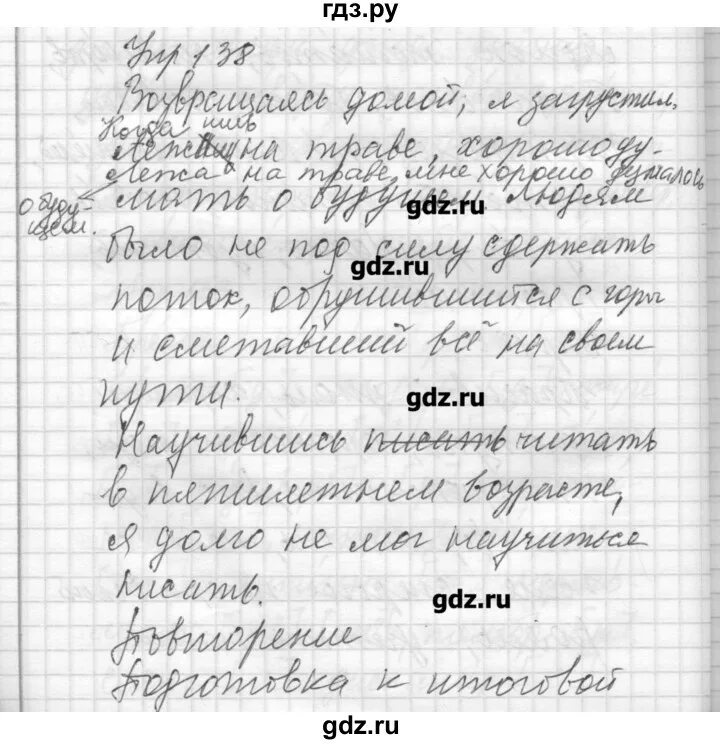 гдз.ру
Упр 138
Возвращаясь домой, я загрустил.
Когда
Лежа на траве, хорошо ду-
Лежа на траве, мне хорошо думалось
о буду-
щем.
мать о будущем Людям
gdz.ru
было не под силу сдержать
gdz.ru
поток, обрушившийся с горы
и сметавший всё на своем
пути.
gdz.ru
Научившись писать читать
в пятилетнем возрасте,
я долго не мог научиться
писать.
gdz.ru
Повторение
Подготовка к итоговой
gdz.ru